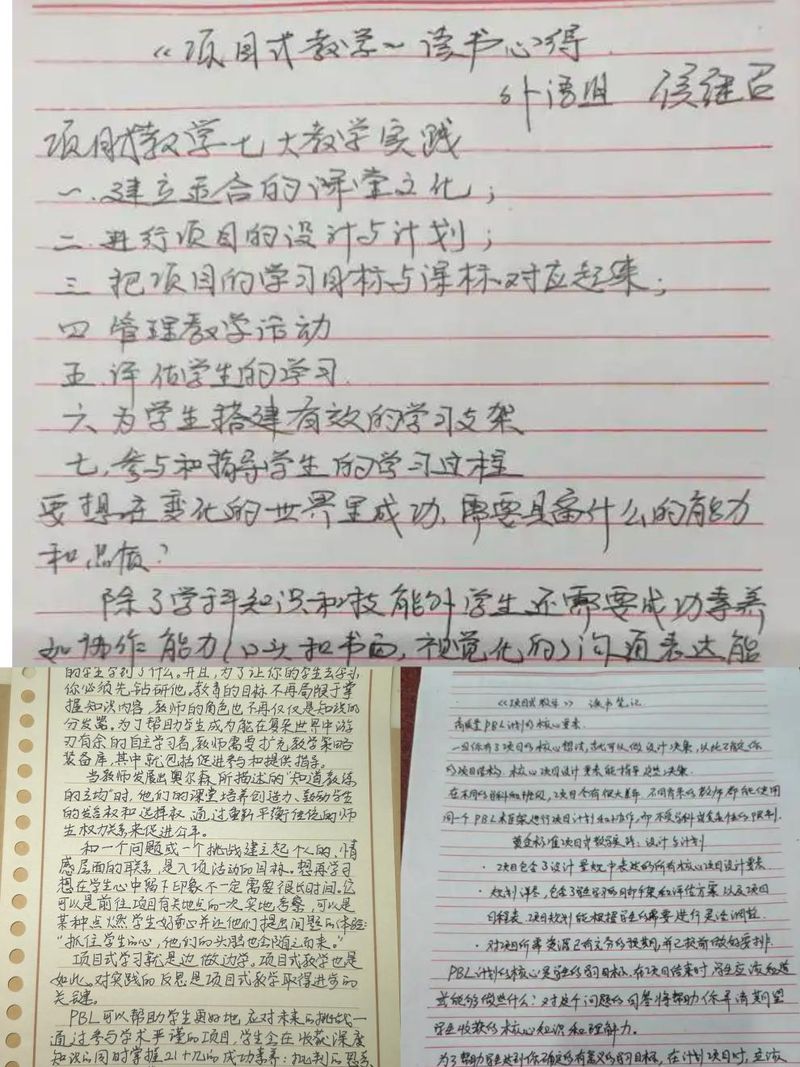 《项目式教学》读书心得
外语组 侯继召
项目式教学七大教学实践
一.建立适合的课堂文化；
二.进行项目的设计与计划；
三 把项目的学习目标与课标对应起来；
四 管理教学活动
五.评估学生的学习.
六 为学生搭建有效的学习支架
七.参与和指导学生的学习过程
要想在变化的世界里成功,需要具备什么的能力
和品质？
除了学科知识和技能外学生还需要成功素养
如协作能力(口头和书面,视觉化的)沟通表达能
的学生学到了什么。并且,为了让你的学生去学习,
你必须先钻研他。教育的目标不再局限于掌
握知识内容,教师的角色也不再仅仅是知识的
分发器。为了帮助学生成为能在复杂世界中游
刃有余的自主学习者,教师需要扩充教学策略
装备库,其中就包括促进参与和提供指导。
当教师发展出奥尔森所描述的"知道教练
的主场"时,他们的课堂培养创造力、鼓动学生
的发言权和选择权,通过重新平衡传统的师
生权力关系来促进公平。
和一个问题或一个挑战建立起个人的、情
感层面的联系,是入项活动的目标。想再学习
想在学生心中留下印象不一定需要很长时间。它
可以是前往项目有关地点的一次实地考察,可以是
某种点燃学生好奇心并让他们提出问题的体验:
"抓住学生的心,他们的头脑也会随之而来。"
项目式学习就是边做边学。项目式教学也是
如此。对实践的反思是项目式教学取得进步的
关键。
PBL可以帮助学生更好地应对未来的挑战—
通过参与学术严谨的项目,学生会在收获深度
知识的同时掌握21世纪的成功素养:批判的思考
《项目式教学》 读书笔记
高质量PBL计划的核心要素.
一旦你有了项目的核心想法,就可以做设计决策,从此确定你
的项目结构.核心项目设计要素能指导这些决策.
在不同的学科和班级,项目会有很大差异.不同背景的教师都能使用
同一个PBL来框架进行项目计划和协作,而不受学科或者条件的限制.
黄金标准项目式教学实践:设计与计划
·项目包含了设计量规中表述的所有核心项目设计要素.
·规划详尽,包含了学生学习的脚手架和评估方案以及项目
日程表.项目规划能根据学生的需要进行灵活调整.
·对项目所需资源已有充分的预期,并已提前做好安排.
PBL计划的核心是学生的学习目标.在项目结束时,学生应该知道
或能够做些什么?对这个问题的回答将帮助你弄清期望
学生收获的核心知识和理解力.
为了帮助学生达到你确定的有意义的学习目标,在计划项目时,应该